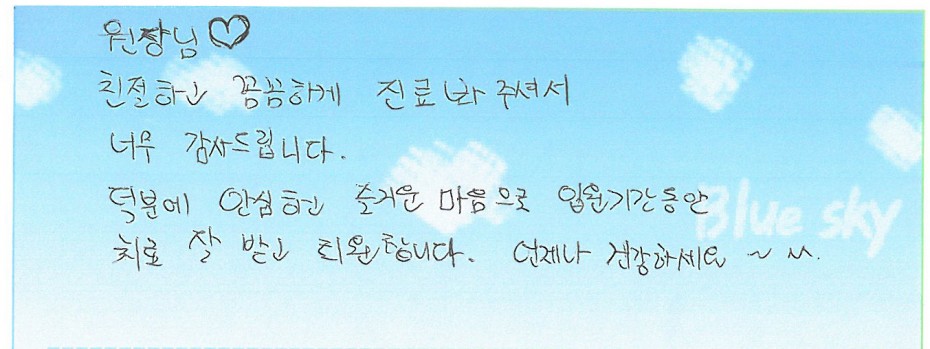 원장님♡
친절하고 꼼꼼하게 진료봐주셔서
너무 감사드립니다.
덕분에 안심하고 즐거운 마음으로 입원기간동안
Blue sky
치료 잘 받고 퇴원합니다. 언제나 건강하세요 ~ ^^.